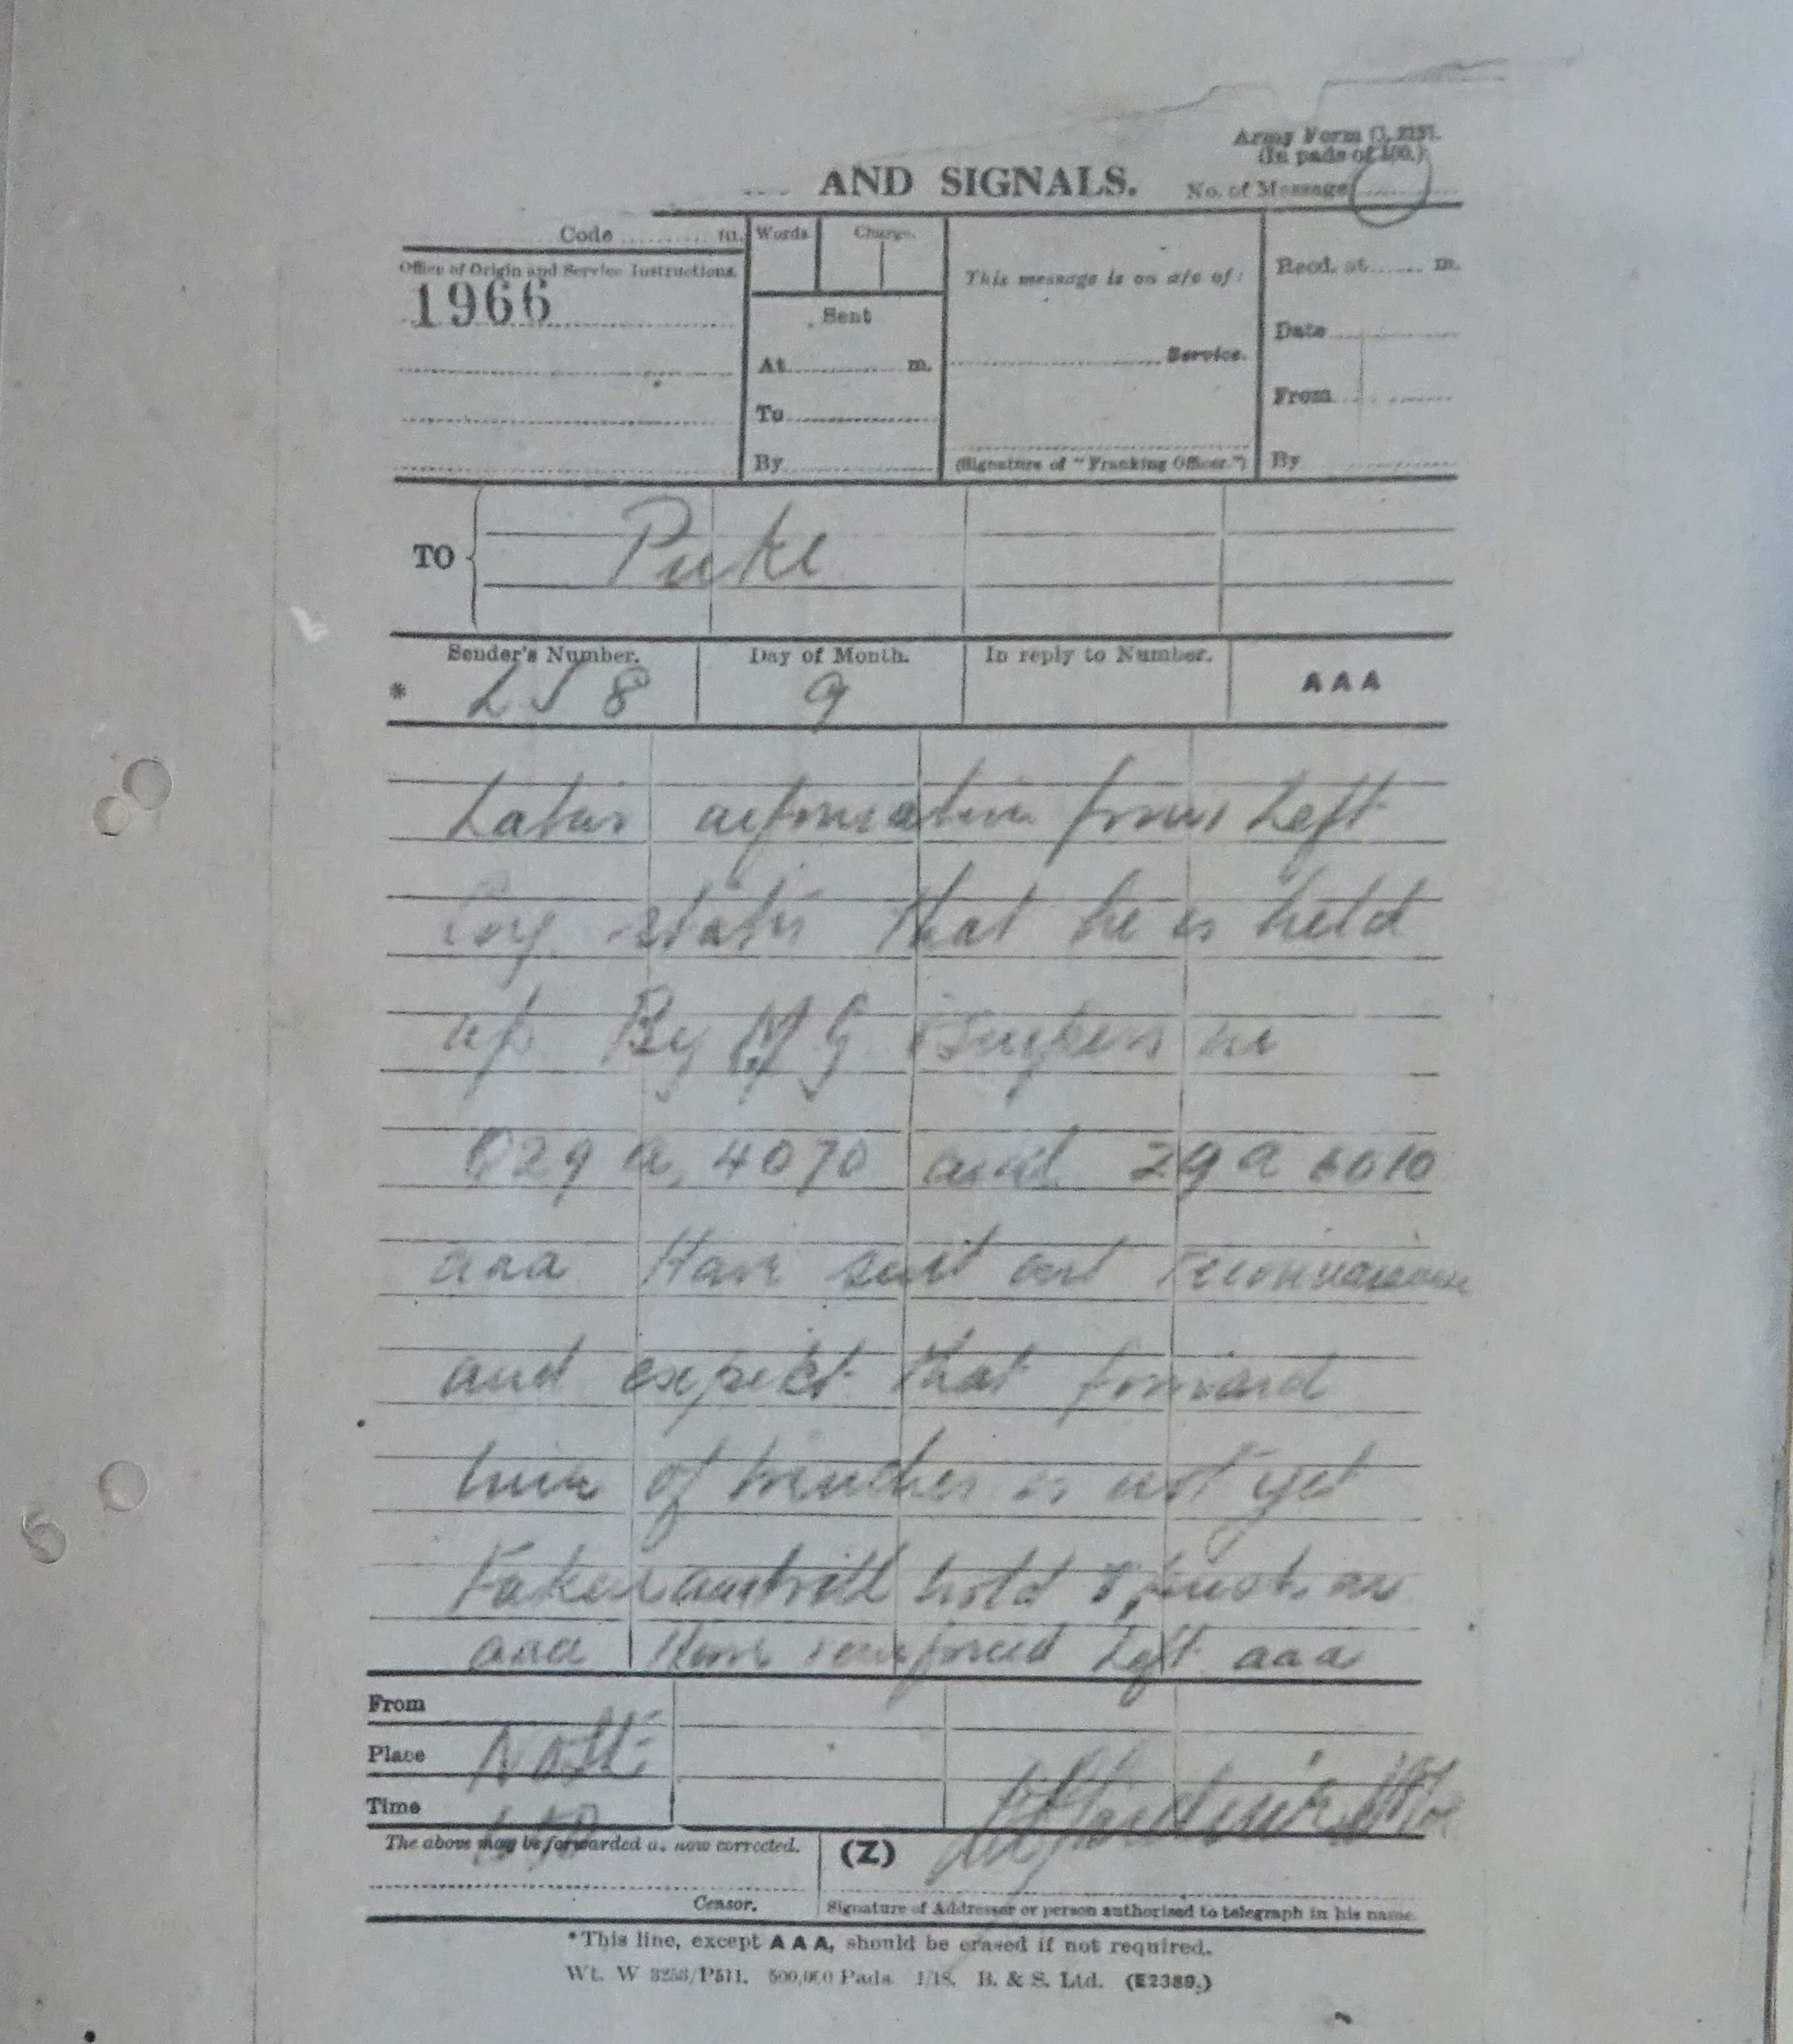 Army Form C. 2121.
(In pads of 100.)
AND SIGNALS. No. of Message
Code m. Words Charge.
This message is on a/c of: Recd. at m.
Office of Origin and Service Instructions.
1966
Sent
Date
At m. Service.
From
To
By (Signature of "Franking Officer.") By
TO
Sender's Number. Day of Month. In reply to Number. AAA
* LJ 8 9
Later information from Left
Coy states that he is held
up By MG & Snipers in
029 a 4070 and 29 a 6010
aaa Have sent out reconnaissance
and expect that forward
line of trenches is not yet
taken and will hold & push on
aaa Have reinforced Left aaa
From
Place
Time
The above may be forwarded as now corrected. (Z)
Censor. Signature of Addressor or person authorised to telegraph in his name
*This line, except AAA, should be erased if not required.
Wt. W 3253/P511. 500,000 Pads. 1/18. B. & S. Ltd. (E2389.)